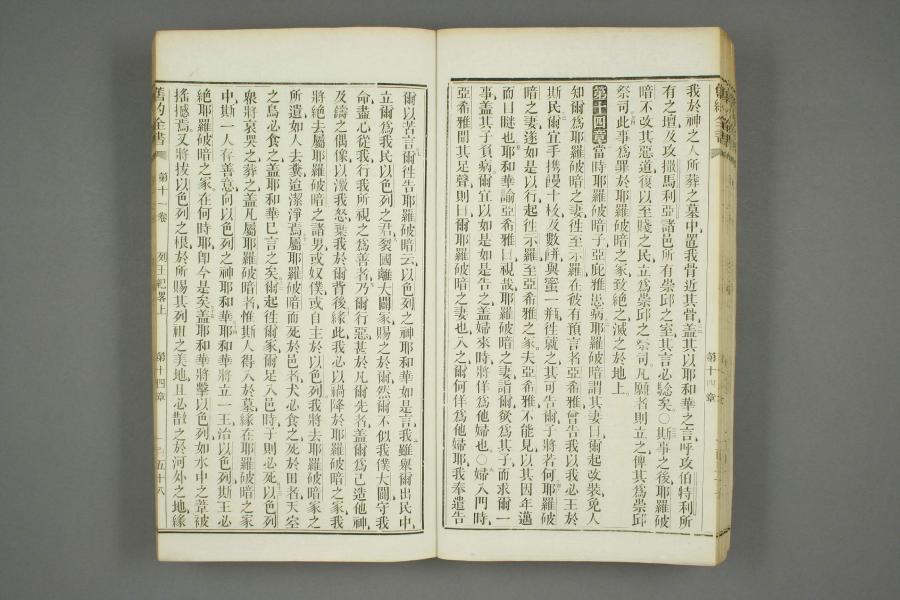 我於神之人所葬之墓中置我骨近其骨蓋其以耶和華之言呼攻伯特利所
有之壇及攻撒馬利亞諸邑所有崇邱之室其言必騐矣〇斯事之後耶羅破
暗不改其惡道復以至賤之民立為崇邱之祭司凡願者則立之俾其為崇邱
祭司此事為罪於耶羅破暗之家致絶之滅之於地上
第十四章當時耶羅破暗子亞庇雅患病耶羅破暗謂其妻曰爾起改裝免人
知爾為耶羅破暗之妻徃至示羅在彼有預言者亞希雅曾告我以我必王於
斯民爾宜手携饅十枚及數餅與蜜一瓶徃就之其可告爾子將若何耶羅破
暗之妻遂如是以行起徃示羅至亞希雅之家夫亞希雅不能見以其因年邁
而目瞇也耶和華諭亞希雅曰視哉耶羅破暗之妻詣爾欲為其子而求爾一
事蓋其子有病爾宜以如是如是告之蓋婦來時將佯為他婦也〇婦入門時
亞希雅聞其足聲則曰爾耶羅破暗之妻也入之爾何佯為他婦耶我奉遣告
第十四章
爾以苦言爾徃告耶羅破暗云以色列之神耶和華如是言我雖舉爾出民中
立爾為我民以色列之君裂國離大闢家賜之於爾然爾不似我僕大闢守我
命盡心從我行我所視之為善者乃爾行惡甚於凡爾先者蓋爾為己造他神
及鑄之偶像以激我怒棄我於爾背後緣此我必以禍降於耶羅破暗之家我
將絶去屬耶羅破暗之諸男或奴僕或自主於以色列我將去耶羅破暗家之
所遺如人去糞迨潔淨焉屬耶羅破暗而死於邑者犬必食之死於田者天空
之鳥必食之蓋耶和華已言之矣爾起徃爾家爾足入邑時子則必死以色列
衆將哀哭之葬之蓋凡屬耶羅破暗者惟斯人得入於墓緣在耶羅破暗之家
中斯一人存善意向以色列之神耶和華耶和華將立一王治以色列斯王必
絶耶羅破暗之家在何時耶卽今是矣蓋耶和華將擊以色列如水中之葦被
搖撼焉又將拔以色列之根於所賜其列祖之美地且必散之於河外之地緣
舊約全書 第十一卷 列王紀畧上 第十四章 五十八